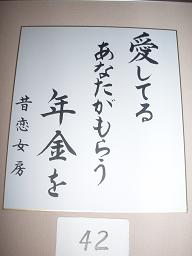 愛してる
あなたがもらう
年金を
昔恋女房
42